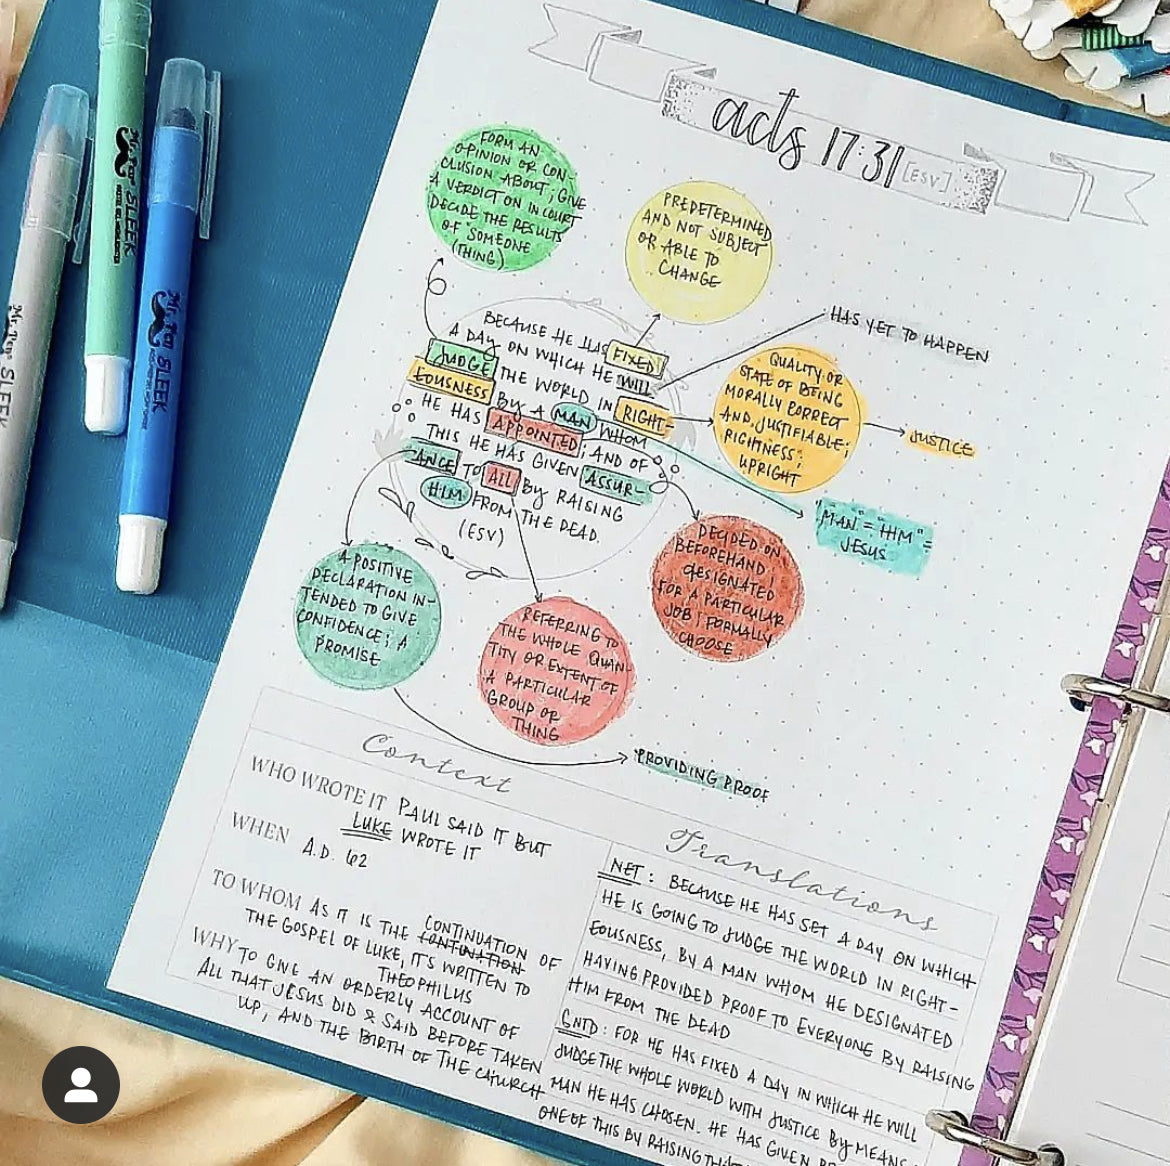 acts 17:31 [ESV]
FORM AN
OPINION OR CON-
CLUSION ABOUT; GIVE
A VERDICT ON IN COURT
DECIDE THE RESULTS
OF SOMEONE
(THING)
PREDETERMINED
AND NOT SUBJECT
OR ABLE TO
CHANGE
HAS YET TO HAPPEN
BECAUSE HE HAS FIXED
A DAY ON WHICH HE WILL
JUDGE THE WORLD IN RIGHT-
EOUSNESS BY A MAN WHOM
HE HAS APPOINTED; AND OF
THIS HE HAS GIVEN ASSUR-
ANCE TO ALL BY RAISING
HIM FROM THE DEAD.
(ESV)
QUALITY OR
STATE OF BEING
MORALLY CORRECT
AND JUSTIFIABLE;
RIGHTNESS;
UPRIGHT
JUSTICE
"MAN" = "HIM" =
JESUS
DECIDED ON
BEFOREHAND;
DESIGNATED
FOR A PARTICULAR
JOB; FORMALLY
CHOOSE
A POSITIVE
DECLARATION IN-
TENDED TO GIVE
CONFIDENCE; A
PROMISE
REFERRING TO
THE WHOLE QUAN
TITY OR EXTENT OF
A PARTICULAR
GROUP OR
THING
PROVIDING PROOF
Context
WHO WROTE IT PAUL SAID IT BUT
LUKE WROTE IT
WHEN A.D. 62
TO WHOM AS IT IS THE CONTINUATION OF
THE GOSPEL OF LUKE, IT'S WRITTEN TO
THEOPHILUS
WHY TO GIVE AN ORDERLY ACCOUNT OF
ALL THAT JESUS DID & SAID BEFORE TAKEN
UP, AND THE BIRTH OF THE CHURCH
Translations
NET: BECAUSE HE HAS SET A DAY ON WHICH
HE IS GOING TO JUDGE THE WORLD IN RIGHT-
EOUSNESS, BY A MAN WHOM HE DESIGNATED
HAVING PROVIDED PROOF TO EVERYONE BY RAISING
HIM FROM THE DEAD
GNTD: FOR HE HAS FIXED A DAY IN WHICH HE WILL
JUDGE THE WHOLE WORLD WITH JUSTICE BY MEANS
MAN HE HAS CHOSEN. HE HAS GIVEN
ONE OF THIS BY RAISING
SLEEK
SLEEK
SLEEK